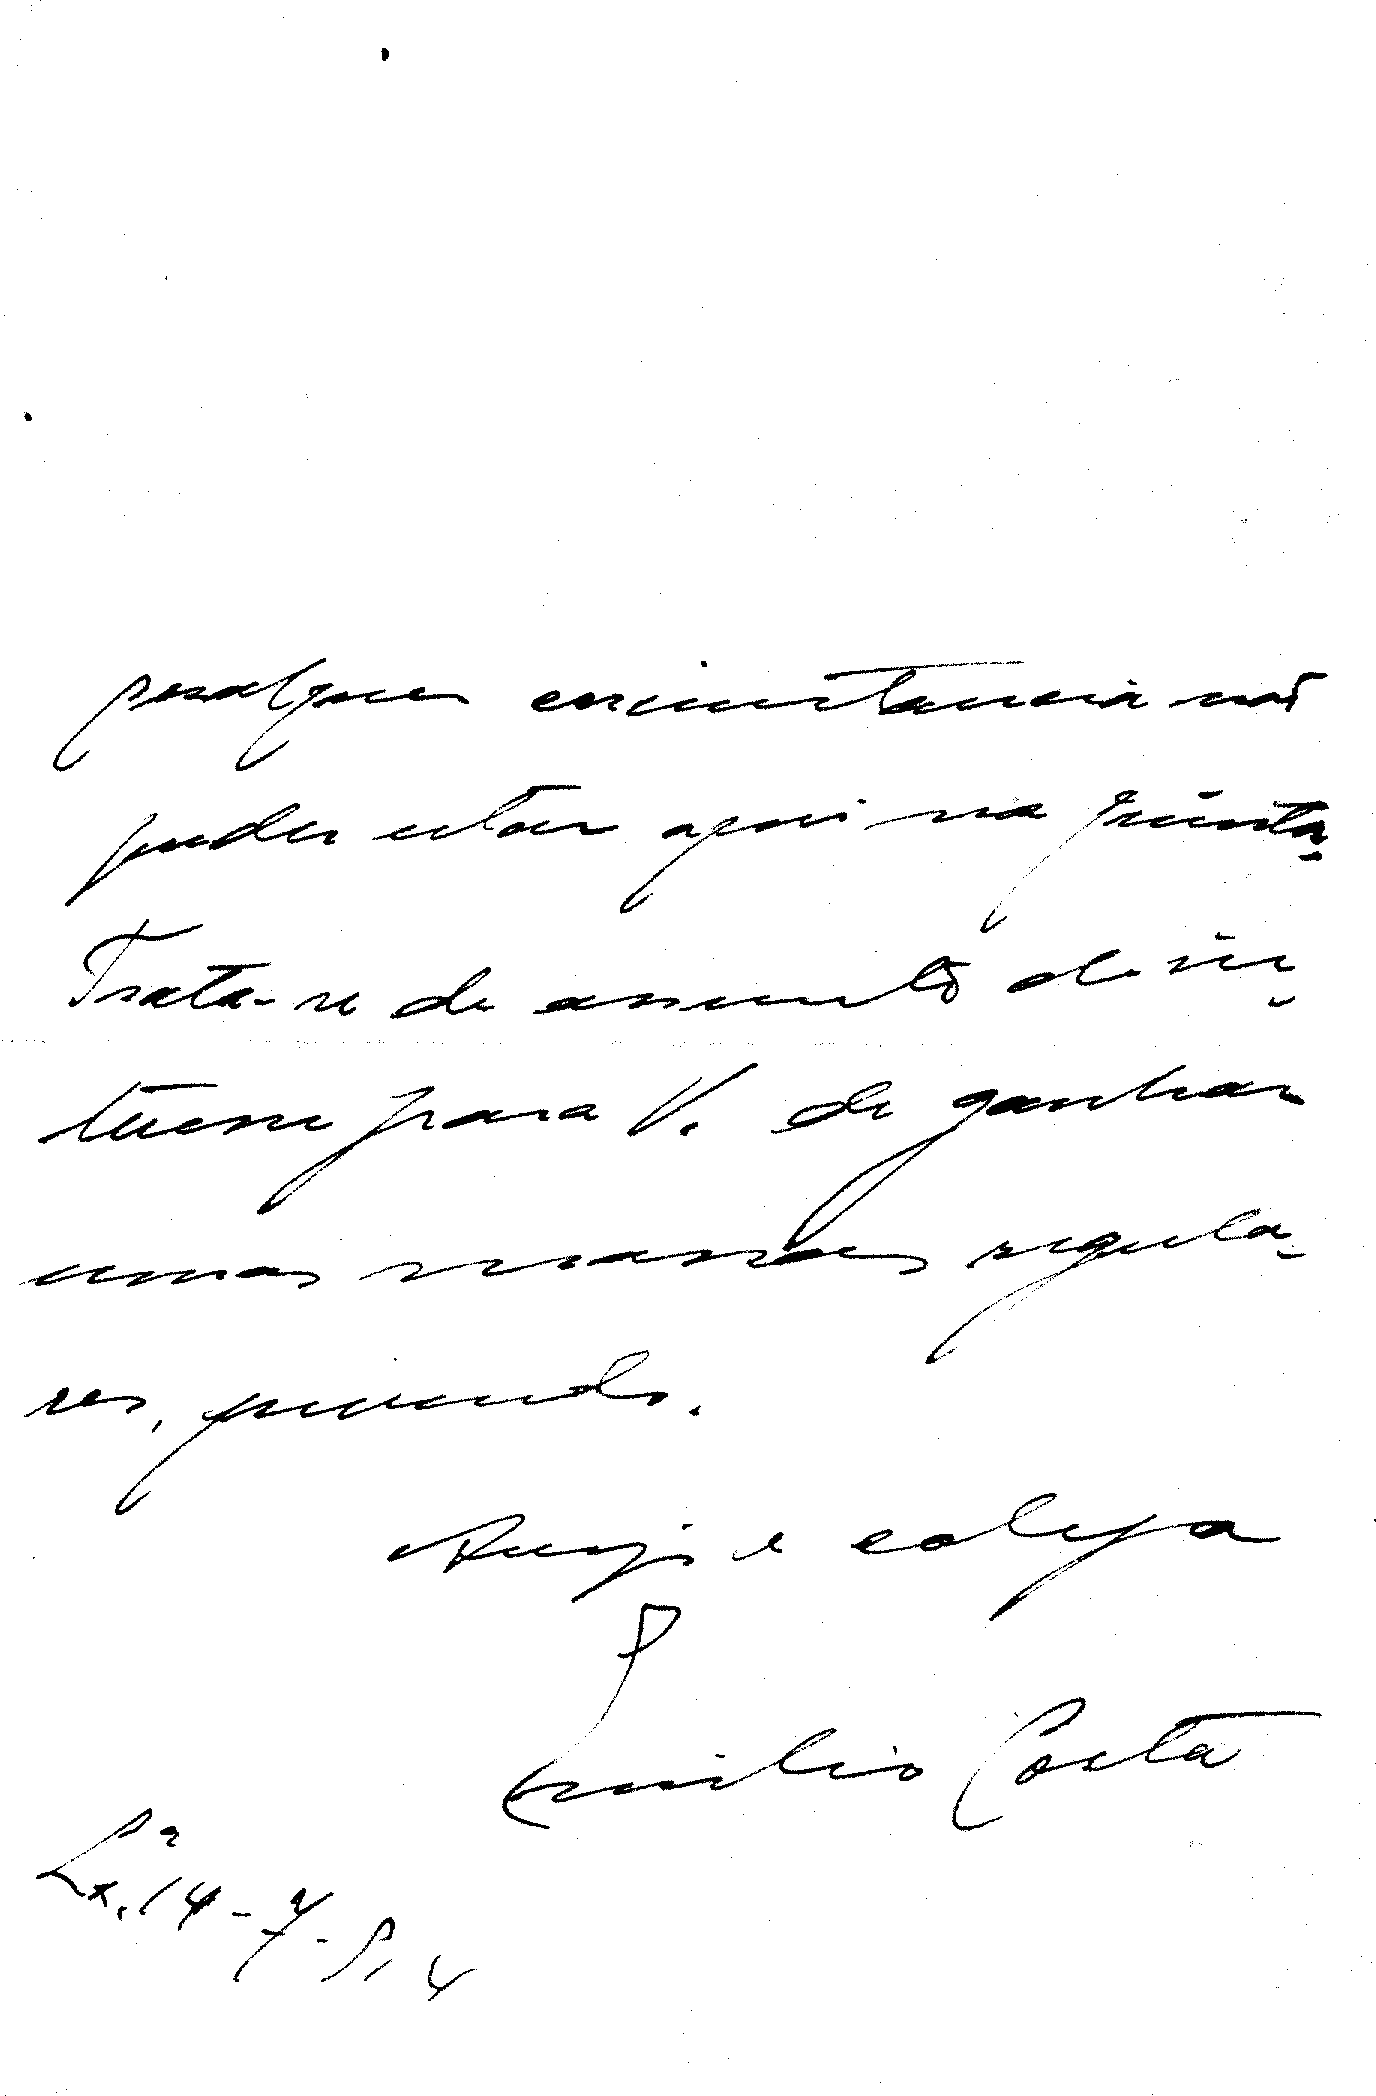 qualquer circunstancia não
puder estar aqui na quinta.
Trata-se de assunto de in-
teresse para V. de ganhar
umas massas regula-
res, querendo.
Amigo e colega
Emilio Costa
Lxª. 14-7-